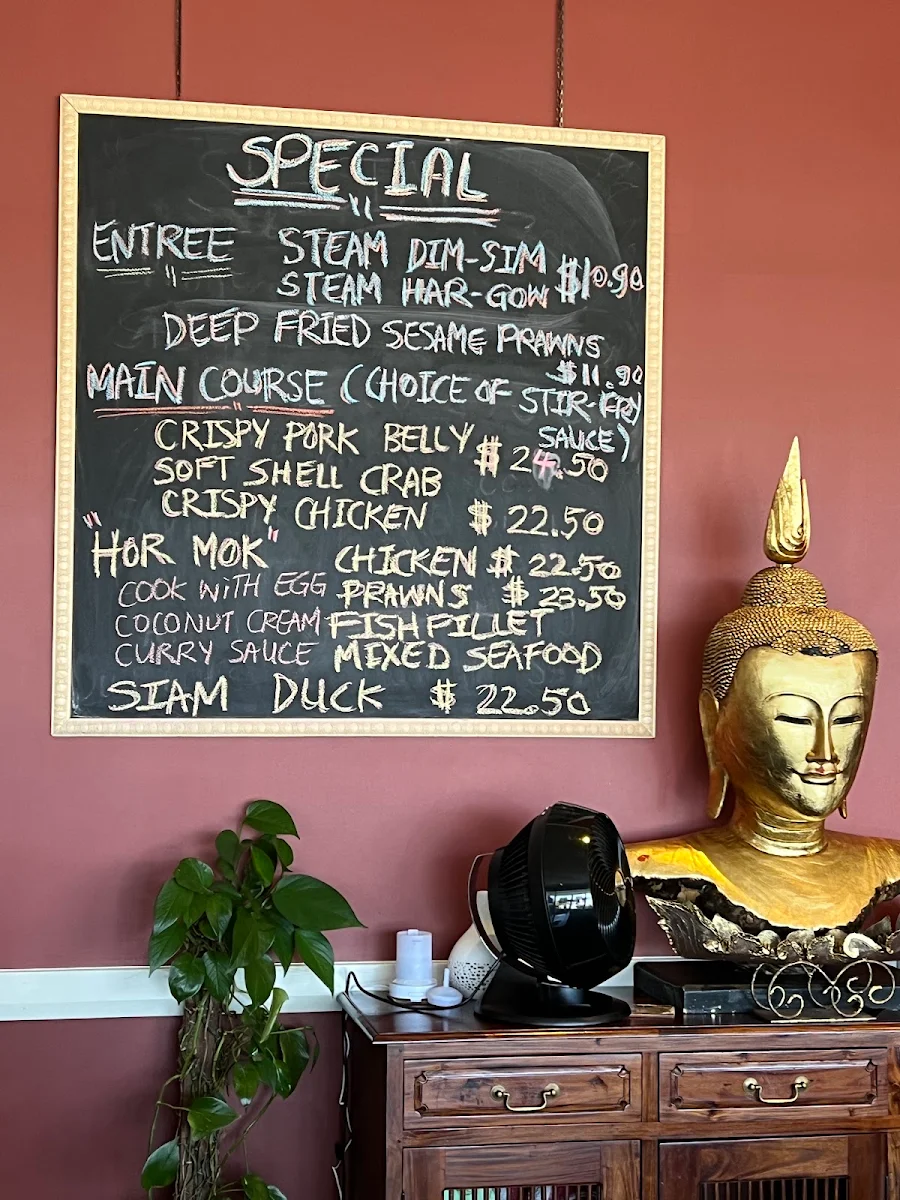 SPECIAL
ENTREE STEAM DIM-SIM
STEAM HAR-GOW $10.90
DEEP FRIED SESAME PRAWNS
$11.90
MAIN COURSE (CHOICE OF STIR-FRY
SAUCE)
CRISPY PORK BELLY
SOFT SHELL CRAB $24.50
CRISPY CHICKEN $22.50
"HOR MOK" CHICKEN $22.50
COOK WITH EGG PRAWNS $23.50
COCONUT CREAM FISH FILLET
CURRY SAUCE MIXED SEAFOOD
SIAM DUCK $22.50